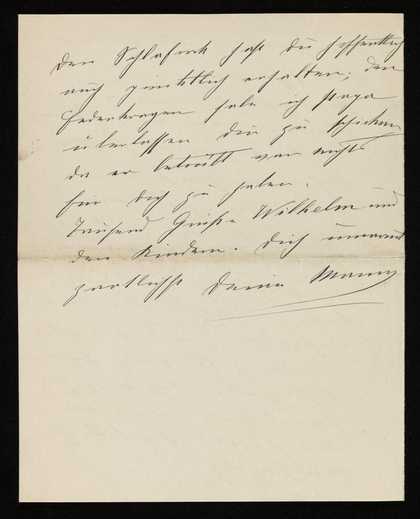 Den Schlafrock hast du hoffentlich
auch pünktlich erhalten; den
Federkragen habe ich Papa
überlassen dir zu schicken
da er betrübt war nichts
für dich zu haben.
Tausend Grüße Wilhelm und
den Kindern. Dich umarmt
zärtlichst Deine Mama